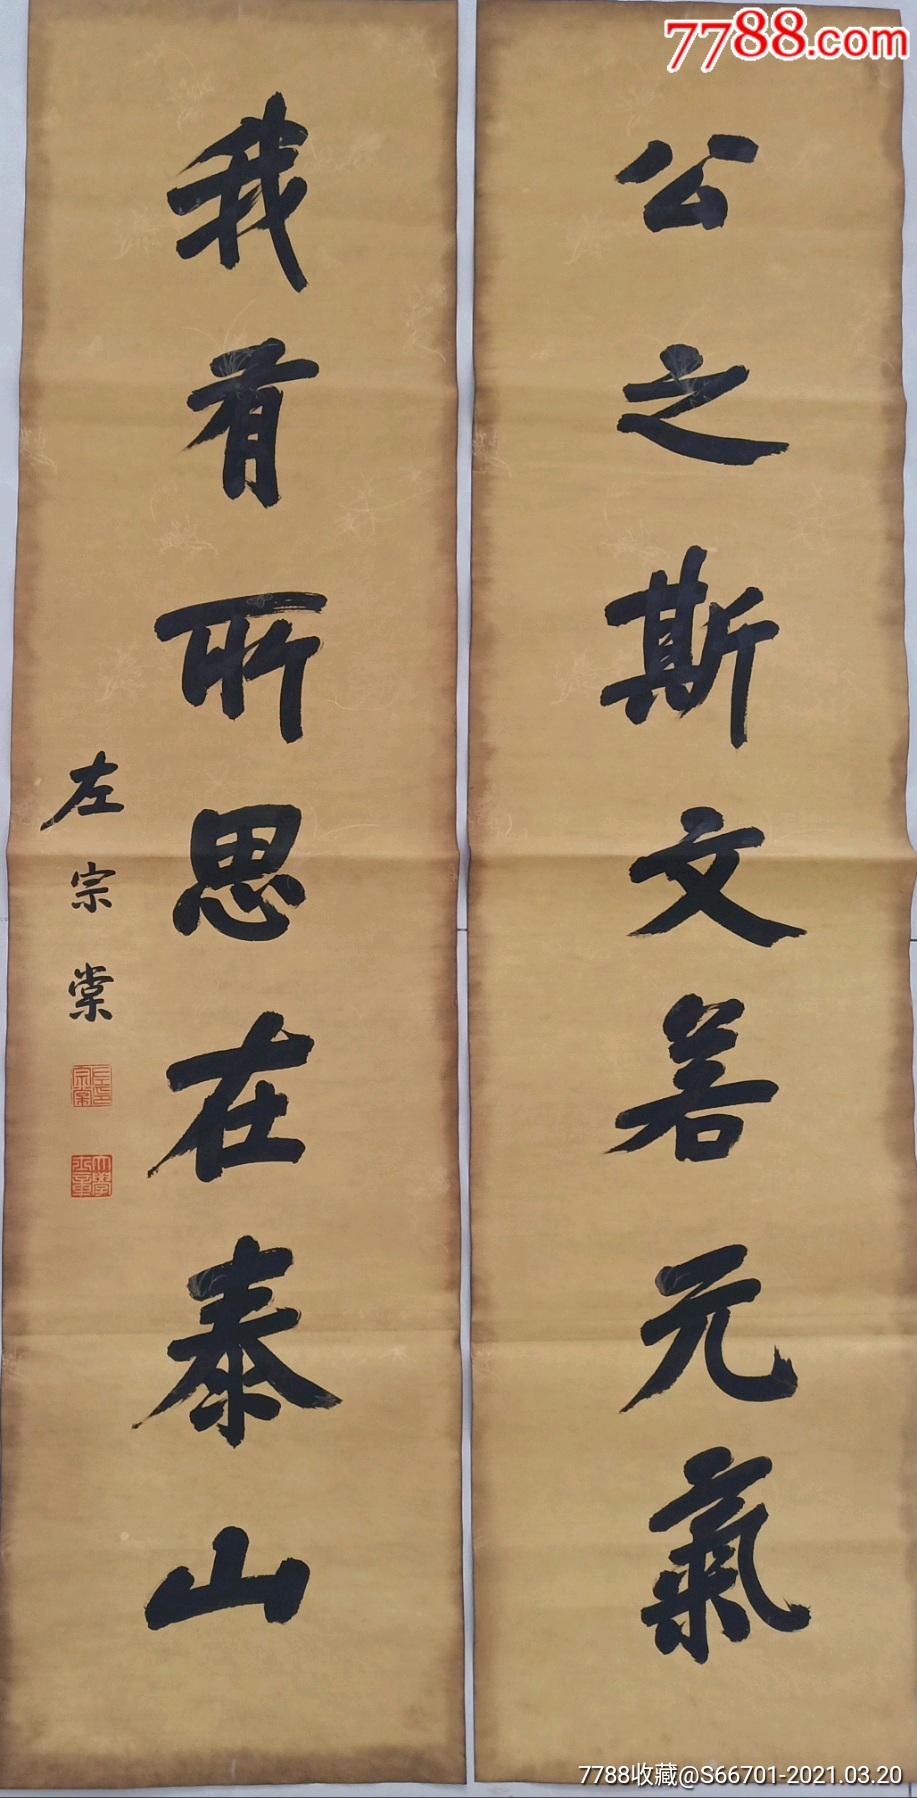 7788.com
公之斯文若元氣
我有所思在泰山
左宗棠
7788收藏@S66701-2021.03.20